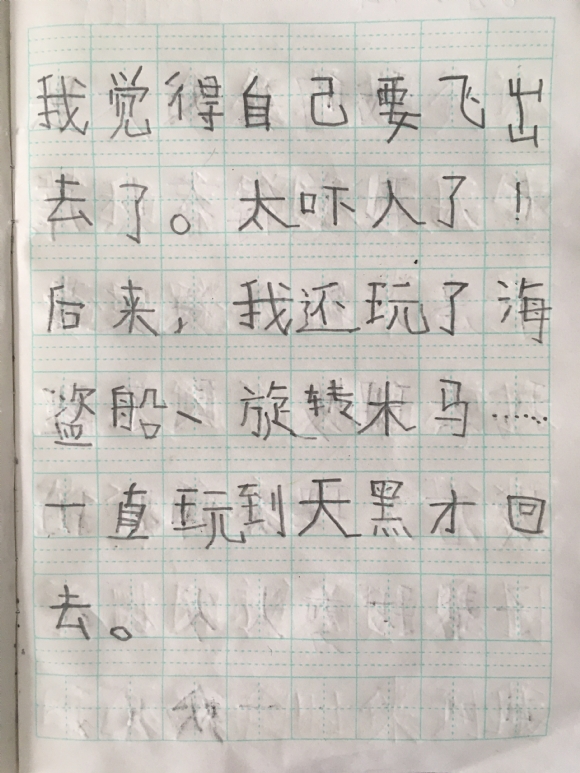 我觉得自己要飞出
去了。太吓人了！
后来，我还玩了海
盗船、旋转木马……
一直玩到天黑才回
去。